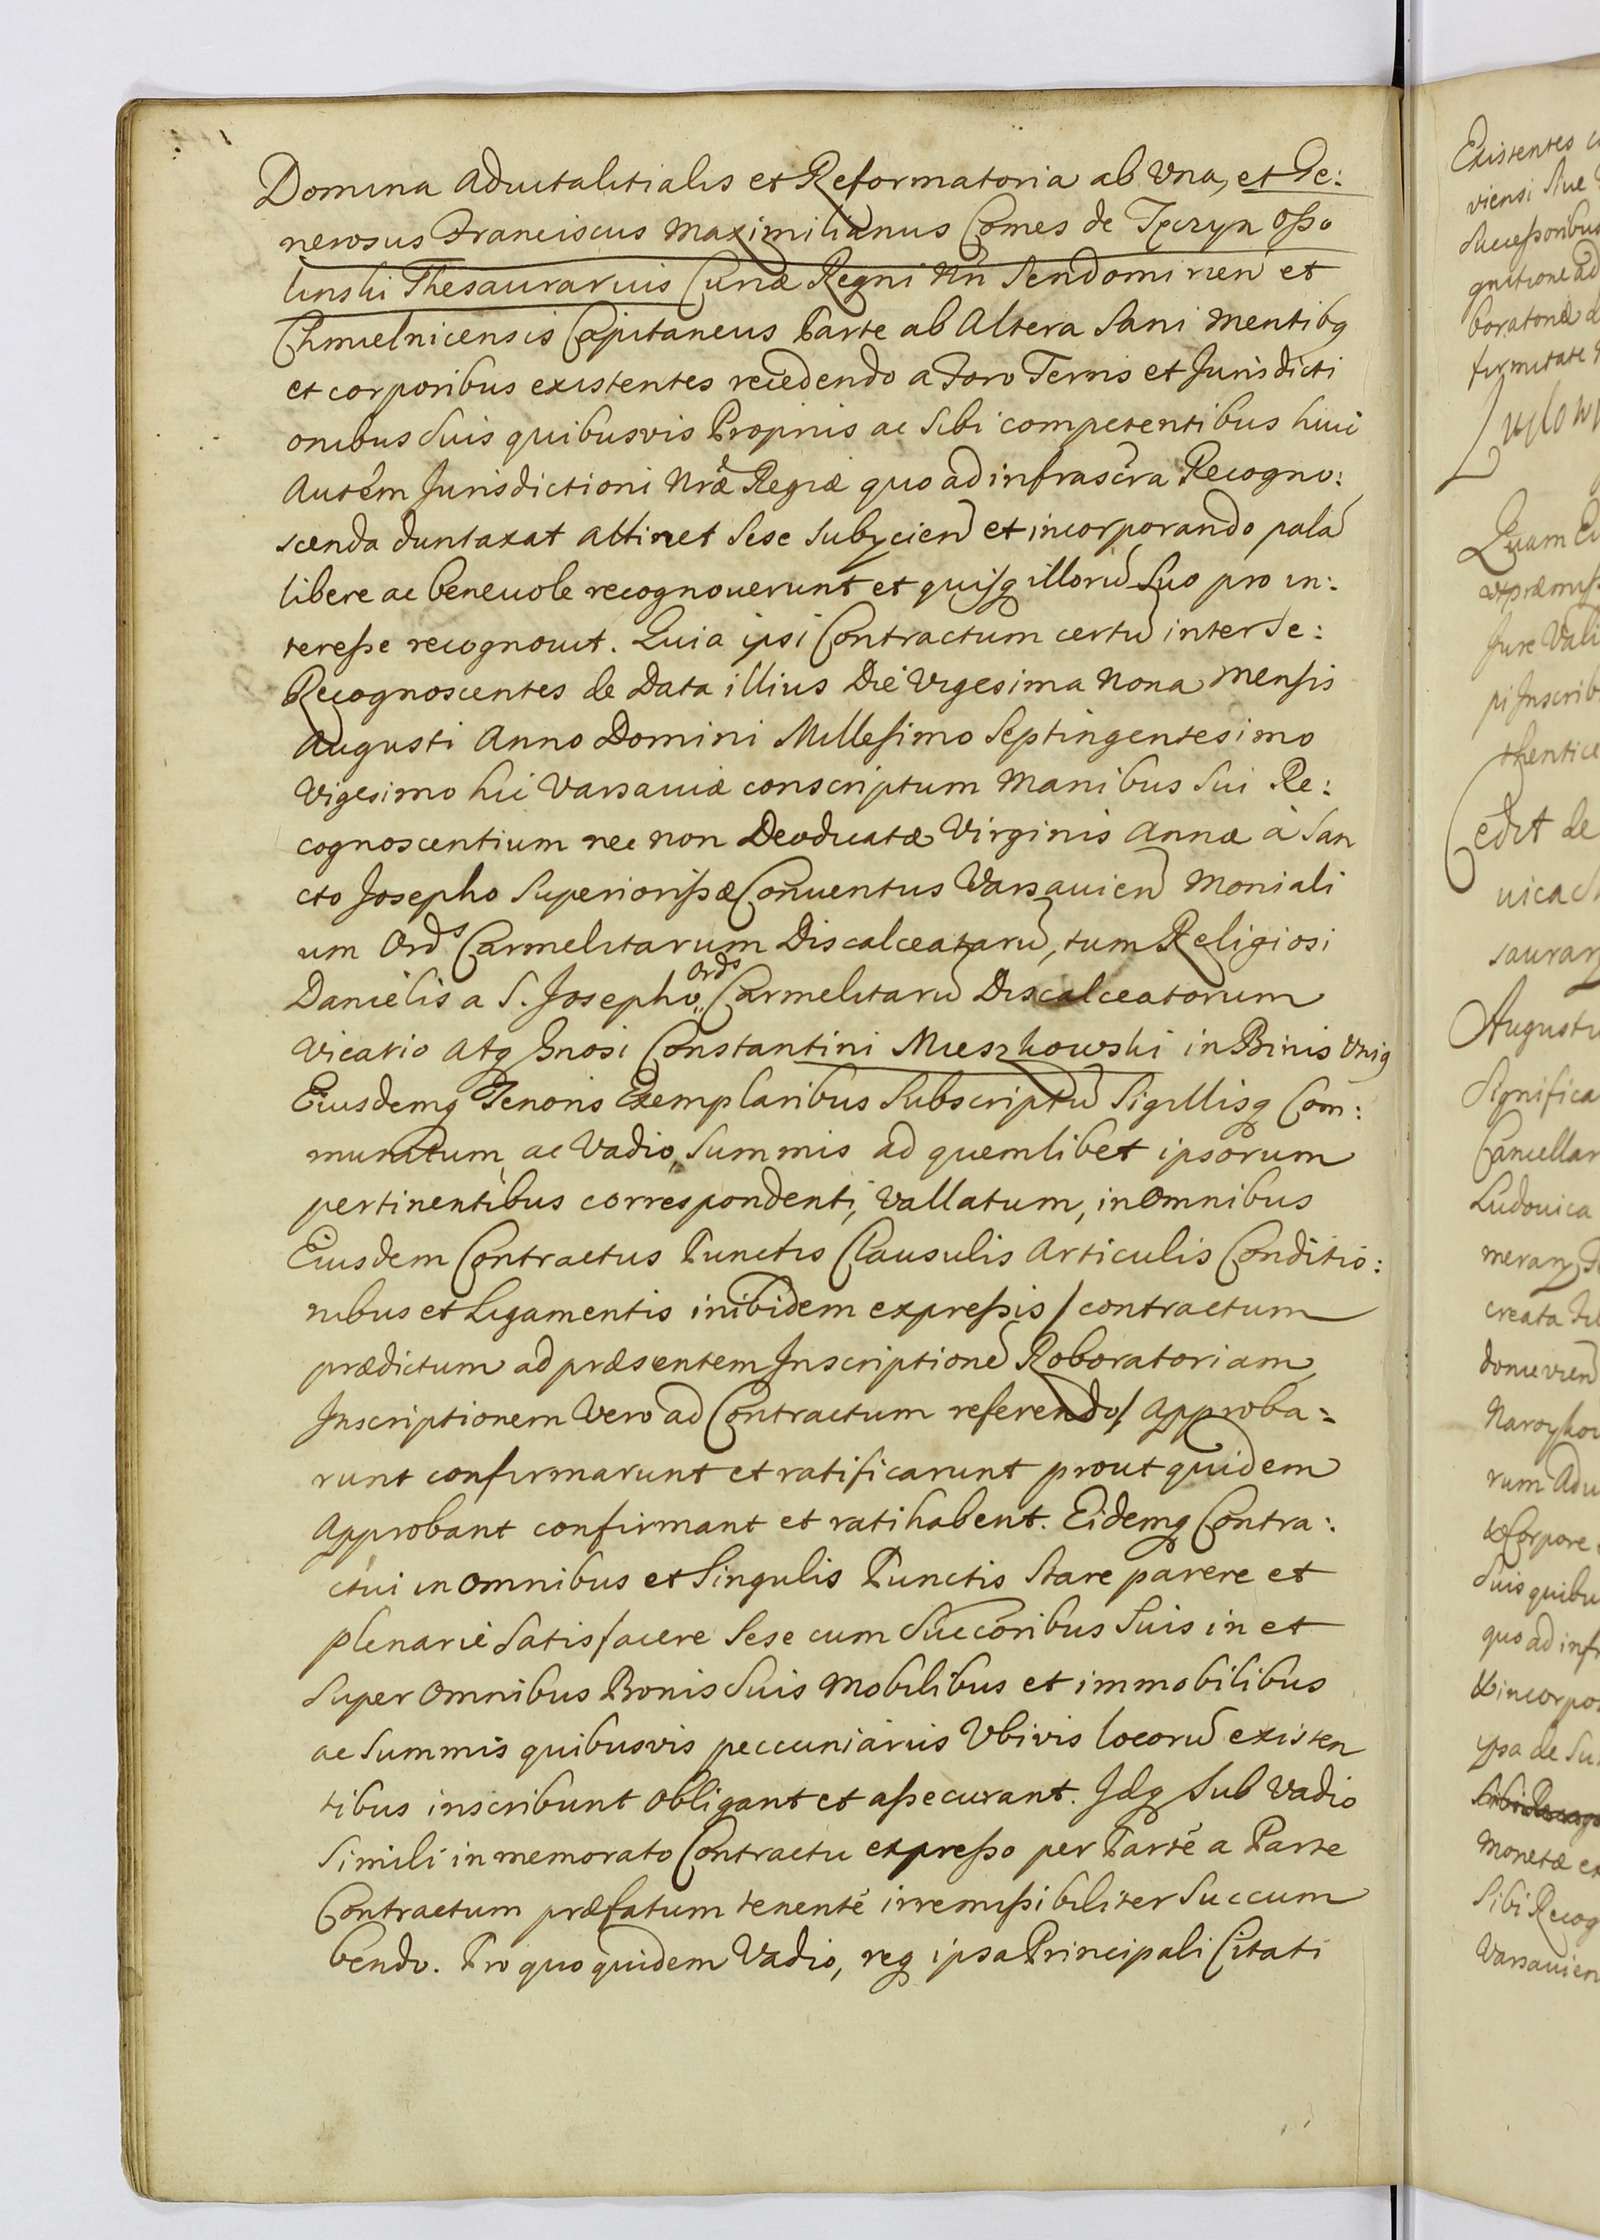 Domina Aduitalitialis et Reformatoria ab Una, et Ge:
nerosus Franciscus Maximilianus Comes de Tęczyn Osso
linski Thesaurarius Curiæ Regni Nri Sendomirien et
Chmielnicensis Capitaneus Parte ab Altera Sani Mentibq
et corporibus existentes recedendo a Foro Terris et Jurisdicti
onibus Suis quibusvis Propriis ac Sibi competentibus huic
Autem Jurisdictioni Nræ Regiæ quo ad infrascra Recogno:
scenda duntaxat attinet Sese Subyciend et incorporando palã
libere ac beneuole recognouerunt et quisq illorũ Suo pro in:
teresse recognouit. Quia ipsi Contractum certũ inter Se:
Recognoscentes de Data illius Die Vigesima Nona Mensis
Augusti Anno Domini Millesimo Septingentesimo
Vigesimo hic Varsauiæ conscriptum Manibus Sui Re:
cognoscentium nec non Deodicatæ Virginis Annæ à San
cto Josepho Superiorissæ Conuentus Varsauien Moniali
um Ords Carmelitarum Discalceatarũ, tum Religiosi
Danielis a S. Josepho Ords Carmelitarũ Discalceatorum
Vicario Atq Gnosi Constantini Mieszkowski in Binis Unig
Eiusdemq Tenoris Exemplaribus Subscriptũ Sigillisq Com:
munitum, ac Vadio, Summis ad quemlibet ipsorum
pertinentibus correspondenti, Vallatum, in Omnibus
Eiusdem Contractus Punctis Clausulis Articulis Conditio:
nibus et Ligamentis inibidem expressis / contractum
prædictum ad præsentem Inscriptionẽ Roboratoriam
Inscriptionem Vero ad Contractum referendo / Approba:
runt confirmarunt et ratificarunt prout quidem
Approbant confirmant et ratihabent. Eidemq Contra:
ctui in Omnibus et Singulis Punctis Stare parere et
plenarie Satisfacere Sese cum Succoribus Suis in et
Super Omnibus Bonis Suis Mobilibus et immobilibus
ac Summis quibusvis peccuniariis Vbivis locorũ existen
tibus inscribunt Obligant et assecurant. Idq Sub Vadio
Simili in memorato Contractu expresso per Parte a Parte
Contractum præfatum tenente irremissibiliter Succum
bendo. Pro quo quidem Vadio, req ipsa Principali Citati